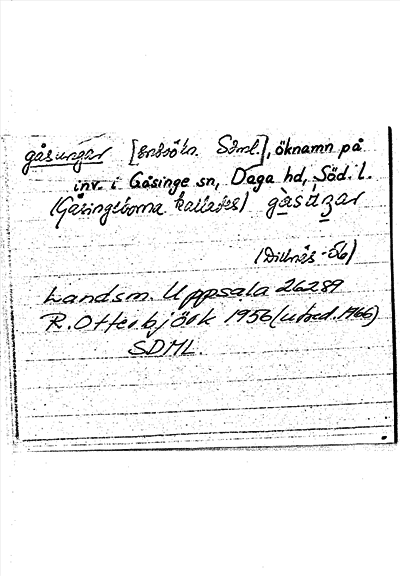 gåsungar [  Söml.], öknamn på
inv. i Gåsinge sn, Daga hd, Söd. l.
(Gåsingeborna kallades) gåsúŋar
(Dillnäs -56)
Landsm. Uppsala 26289
R. Otterbjörk 1956 (utred. 1966)
SDML.